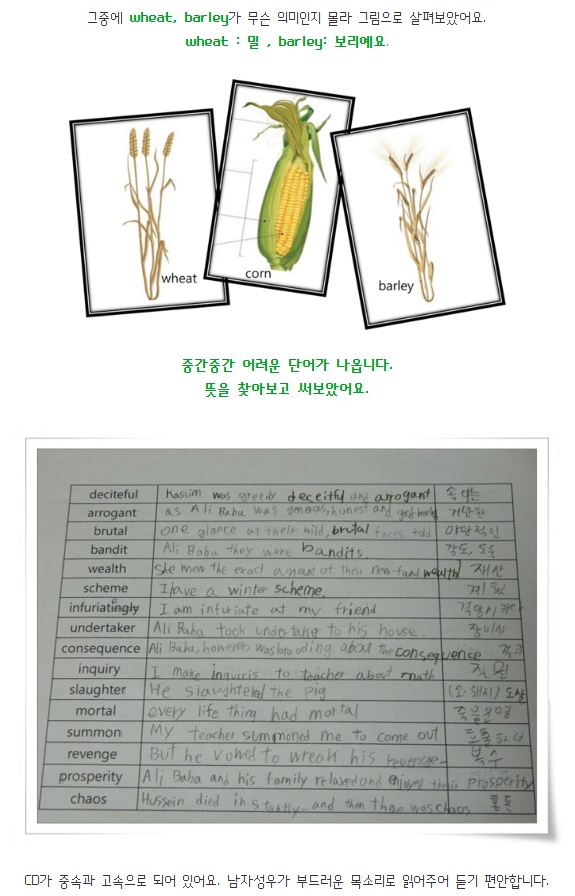 그중에 wheat, barley가 무슨 의미인지 몰라 그림으로 살펴보았어요.
wheat : 밀 , barley: 보리예요.
wheat
corn
barley
중간중간 어려운 단어가 나옵니다.
뜻을 찾아보고 써보았어요.
deciteful Kascim was greedy deceitful and arrogant 속이는
arrogant as Ali Baba was generous, honest and 거만한
brutal one glance at their wild, brutal faces told 야만적인
bandit Ali Baba they were bandits. 강도, 도둑
wealth She knew the exact amount of their new found wealth 재산
scheme I have a winter scheme. 계획
infuriatingly I am infuriate at my friend
undertaker Ali Baba took undertaker to his house 장의사
consequence Ali Baba, however, was brooding about the consequence 결과
inquiry I make inquiris to teacher about math 질문
slaughter He slaughtered the pig (소·돼지) 도살
mortal every life thing had mortal
summon My teacher summoned me to come out 호출하다
revenge But he vowed to wreak his revenge 복수
prosperity Ali Baba and his family relaxed and enjoyed their prosperity
chaos Hussein died instantly and then thae was chaos 혼돈
CD가 중속과 고속으로 되어 있어요. 남자성우가 부드러운 목소리로 읽어주어 듣기 편안합니다.